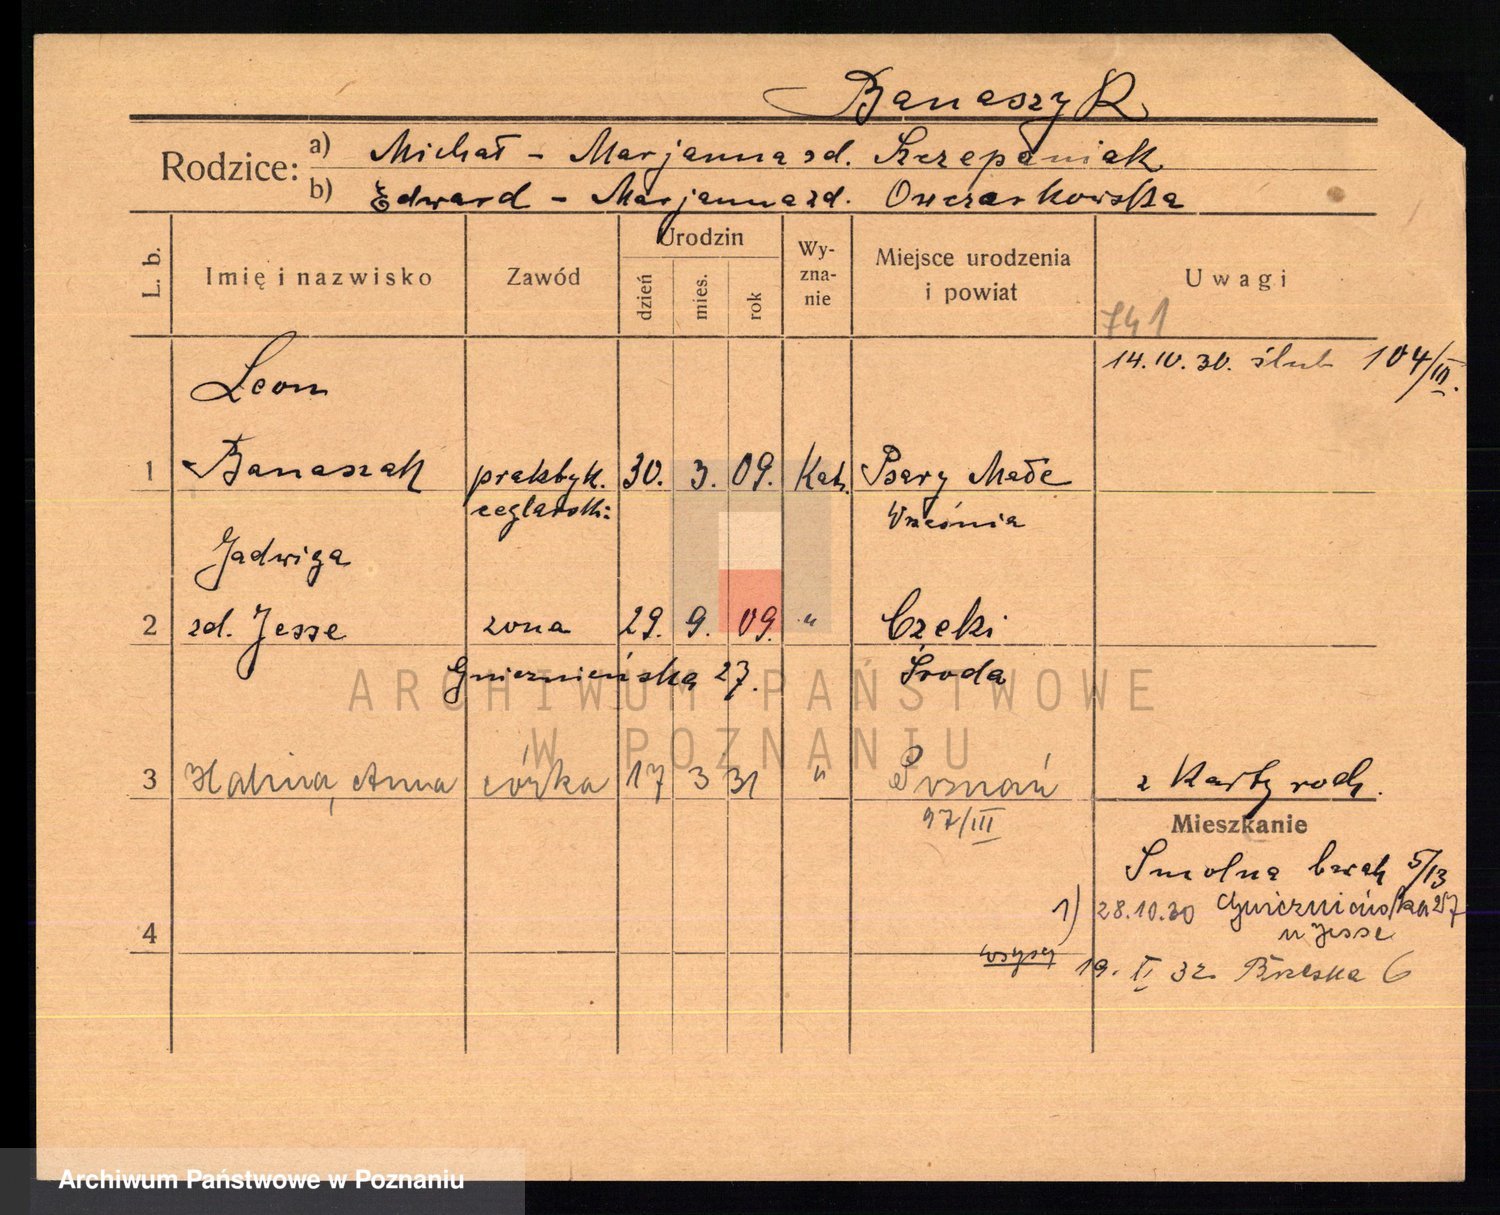 Banaszyk
Rodzice: a) Michał - Marjanna zd. Szczepaniak
b) Edward - Marjanna zd. Owczarkowska
L. b.
Imię i nazwisko
Zawód
Urodzin
dzień
mies.
rok
Wy-
zna-
nie
Miejsce urodzenia
i powiat
Uwagi
741
14.IV.30. ślub 104/III.
Leon
1 Banaszak praktyk. 30. 3. 09. Kat. Psary Małe
ceglarski: Września
Jadwiga
2 zd. Jesse żona 29. 9. 09. " Czeki
Gnieźnieńska 27. Środa
ARCHIWUM PAŃSTWOWE
W POZNANIU
3 Halina, Anna córka 17 3 31 " Poznań z Karty rodz.
97/III
Mieszkanie
Smolna barak 5/13
1) 28.10.30 Gnieźnieńska 27
u Jesse
4
wszyscy 19. 32 Brzeska 6
Archiwum Państwowe w Poznaniu